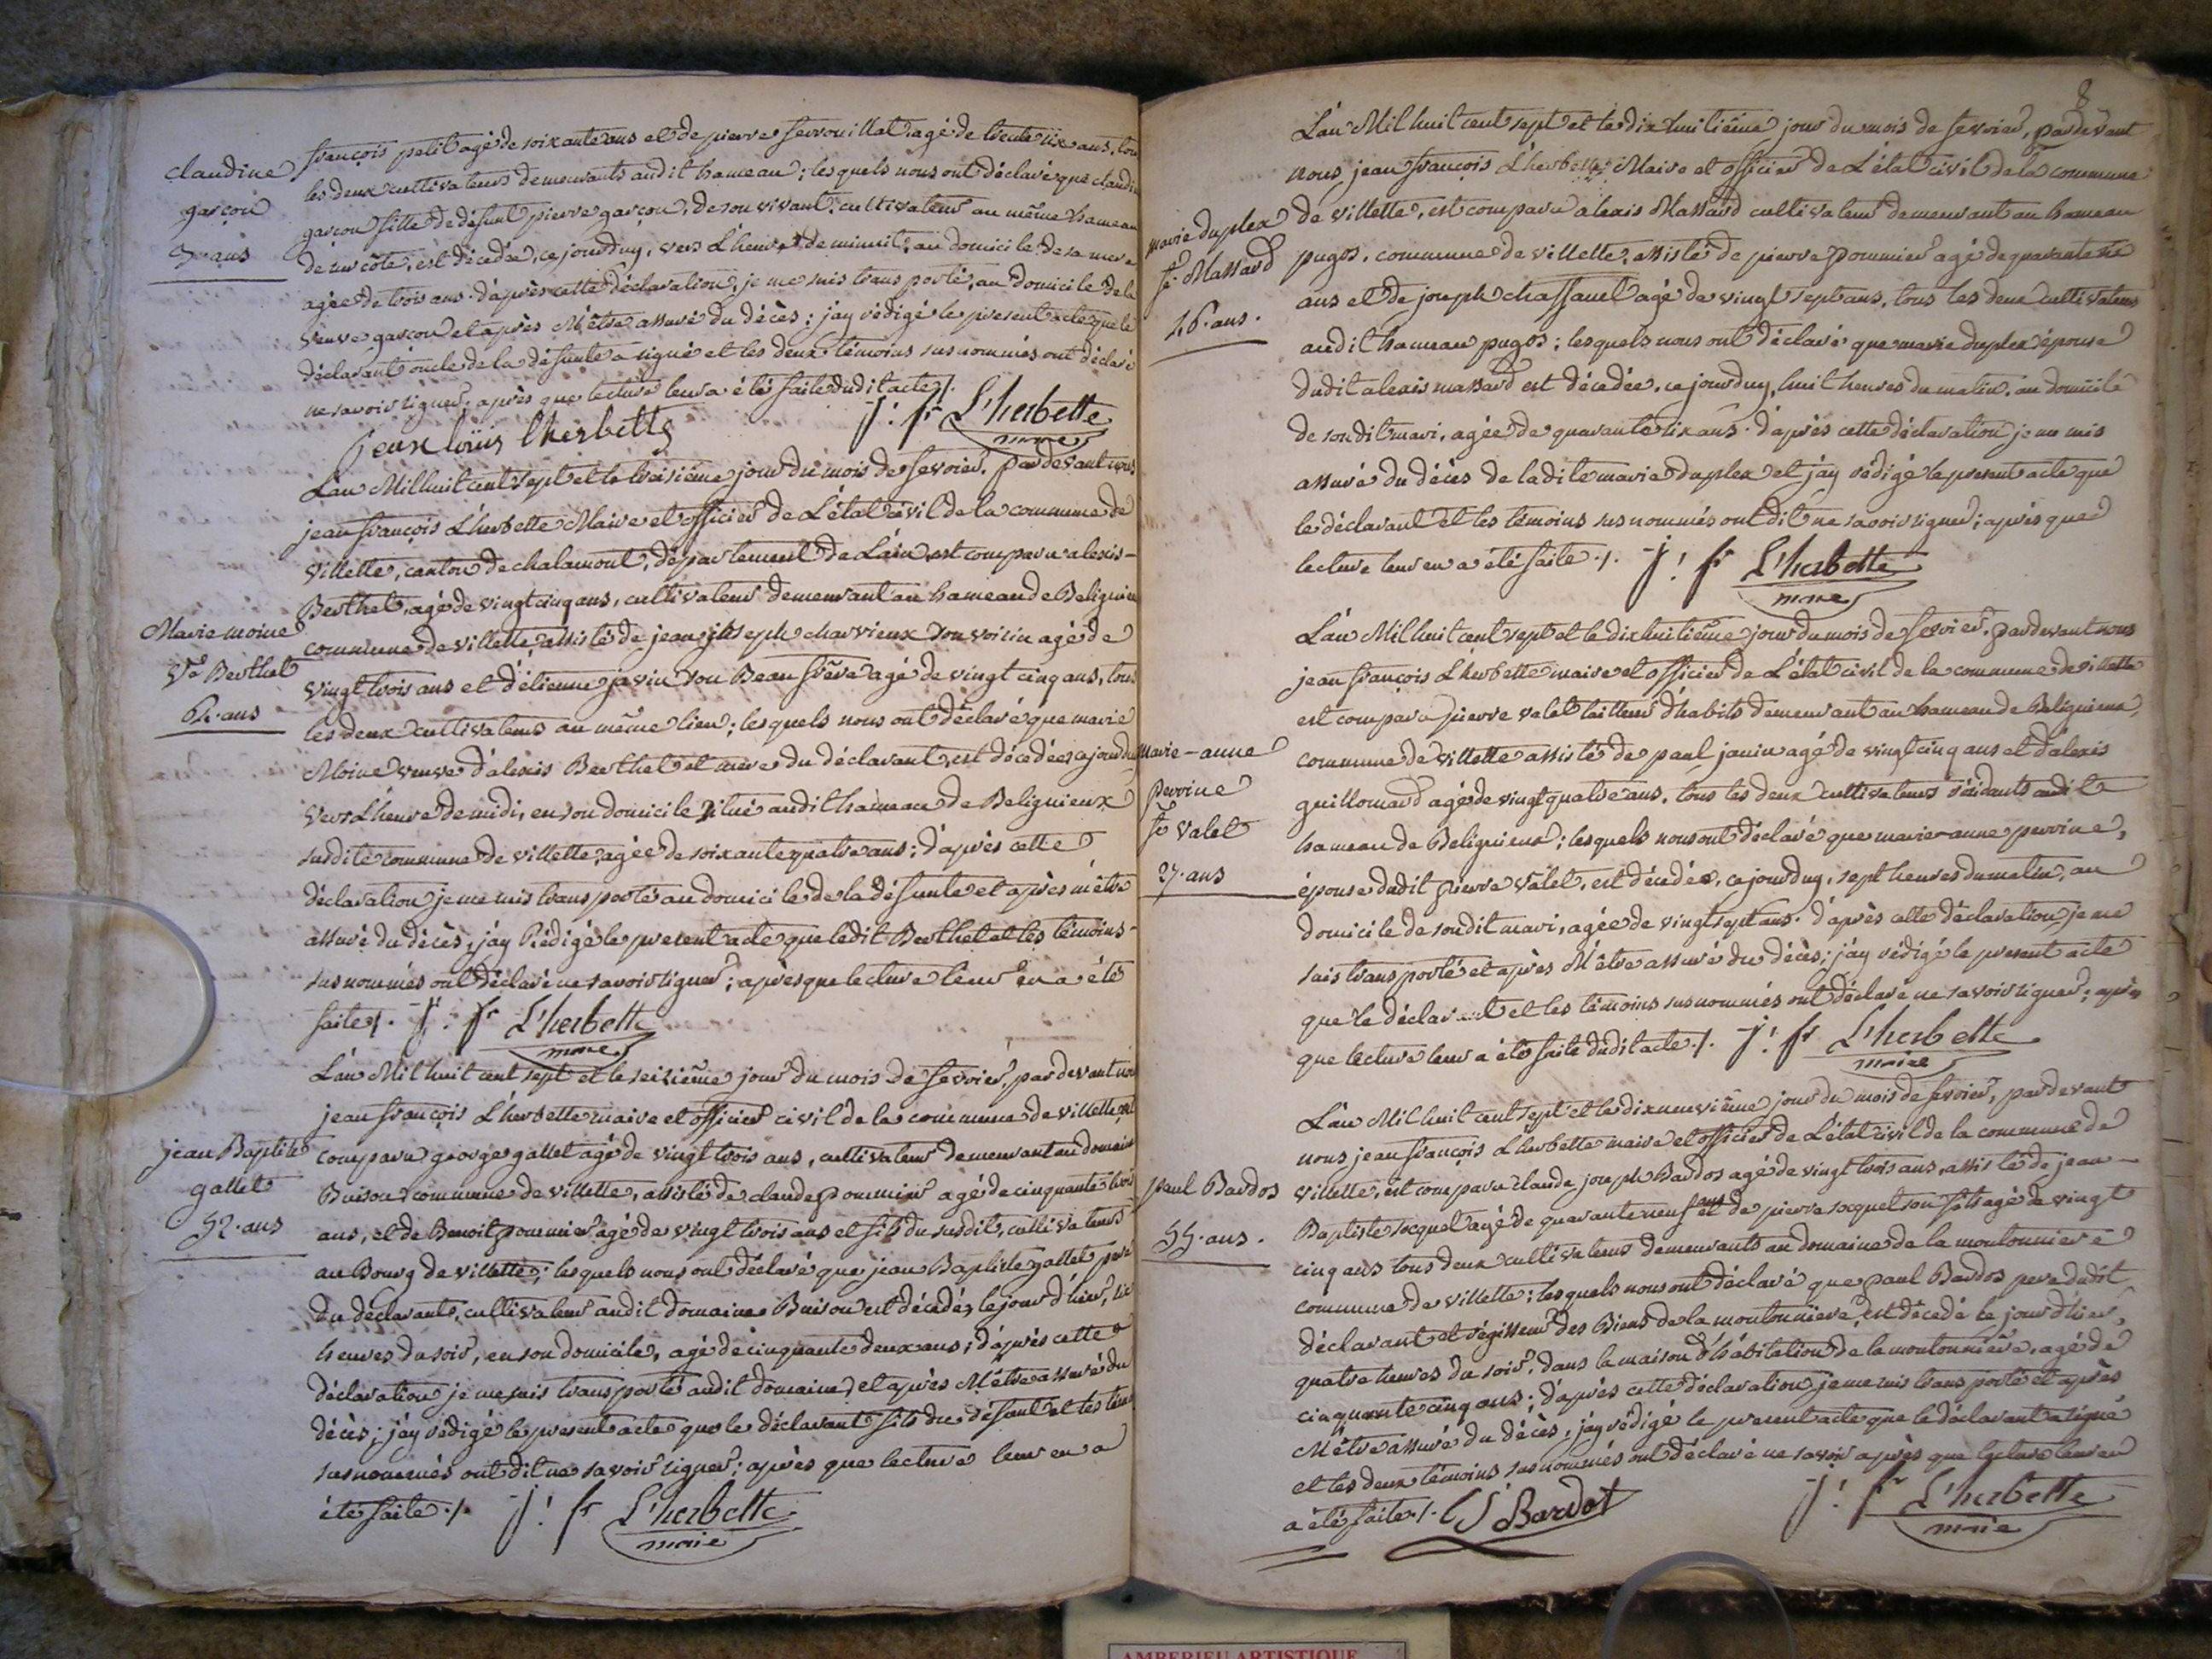 claudine
garçon
3 ans
françois petit agé de soixante ans et de pierre ferrouillat agé de trente six ans, tous
les deux cultivateurs demeurants audit hameau; lesquels nous ont déclaré que claudine
garçon fille de défunt pierre garçon, de son vivant, cultivateur au même hameau
de sur côte, est décédée, ce jourduy, vers L'heure de minuit, au domicile de sa mere
agée de trois ans. d'après cette déclaration, je me suis transporté, au domicile de la
veuve garçon et après M'être assuré du décès; jay rédigé le present acte que le
déclarant oncle de la défunte a signé et les deux témoins susnommés ont déclaré
ne savoir signer; après que lecture leur a été faite dudit acte ./.
jean louis lherbette J. fr L'herbette
maire
L'an Mil huit cent sept et le treisième jour du mois de fevrier. pardevant nous
jean françois L'herbette Maire et officier de L'état civil de la commune de
villette, canton de chalamont, département de L'ain est comparu alexis-
Berthet, agé de vingt cinq ans, cultivateur demeurant au hameau de Beligneux
Marie moine
Ve Berthet
64 ans
commune de villette assisté de jean joseph charvieux son voisin agé de
vingt trois ans et d'étienne javin son Beau frère agé de vingt cinq ans, tous
les deux cultivateurs au même lieu; lesquels nous ont déclaré que marie
Moine veuve d'alexis Berthet et mere du déclarant, est décédée, ce jourduy
vers L'heure de midi, en son domicile situé audit hameau de Belignieux
susdite commune de villette, agée de soixante quatre ans; d'après cette
déclaration je me suis transporté au domicile de la défunte et après m'être
assuré du décès; jay Rédigé le present acte que ledit Berthet et les témoins-
susnommés ont déclaré ne savoir signer; après que lecture leur en a été
faite ./. J. fr L'herbette
maire
L'an Mil huit cent sept et le seizième jour du mois de fevrier, pardevant nous
jean françois L'herbette maire et officier civil de la commune de villette, est
jean Baptiste
gallet
52 ans
comparu george gallet agé de vingt trois ans, cultivateur demeurant au domaine
Buison commune de villette, assisté de claude pommier agé de cinquante trois
ans, et de Benoit pommier agé de vingt trois ans et fils du susdit, cultivateurs
au Bourg de villette; lesquels nous ont déclaré que jean Baptiste gallet pere
du déclarants, cultivateur audit domaine Buison est décédé, le jour d'hier, six
heures du soir, en son domicile, agé de cinquante deux ans; d'après cette
déclaration je me suis transporté audit domaine et après M'être assuré du
décès; jay rédigé le present acte que le déclarant fils du défunt et les témoins
susnommés ont dit ne savoir signer; après que lecture leur en a
été faite ./. J. fr L'herbette
maire
8
L'an Mil huit cent sept et le dix huitième jour du mois de fevrier, pardevant
nous jean françois L'herbette Maire et officier de L'état civil de la commune
marie duplex
fe Massard
46 ans.
de villette, est comparu alexis Massard cultivateur demeurant au hameau
pugos, commune de villette, assisté de pierre pommier agé de quarante six
ans et de joseph chassanet agé de vingt sept ans, tous les deux cultivateurs
audit hameau pugos; lesquels nous ont déclaré que marie duplex épouse
dudit alexis massard est décédée, ce jourduy, huit heures du matin, au domicile
de son dit mari, agée de quarante six ans. d'après cette déclaration je me suis
assuré du décès de ladite marie duplex et jay rédigé le present acte que
le déclarant et les témoins susnommés ont dit ne savoir signer; après que
lecture leur en a été faite ./. J. fr L'herbette
maire
L'an Mil huit cent sept et le dix huitième jour du mois de fevrier, pardevant nous
jean françois L'herbette maire et officier de L'état civil de la commune de villette
est comparu pierre valet tailleur d'habits demeurant au hameau de Beligneux,
marie-anne
perrine
fe valet
27 ans
commune de villette assisté de paul janin agé de vingt cinq ans et d'alexis
guillomard agé de vingt quatre ans, tous les deux cultivateurs résidants audit
hameau de Beligneux; lesquels nous ont déclaré que marie-anne perrine,
épouse dudit pierre valet, est décédée, ce jourduy, sept heures du matin, au
domicile de son dit mari, agée de vingt sept ans. d'après cette déclaration je me
suis transporté et après M'être assuré du décès; jay rédigé le present acte
que le déclarant et les témoins susnommés ont déclaré ne savoir signer; après
que lecture leur a été faite dudit acte ./. J. fr L'herbette
maire
L'an Mil huit cent sept et le dix neuvième jour du mois de fevrier, pardevant
nous jean françois L'herbette maire et officier de L'état civil de la commune de
paul Bardos
55 ans.
villette, est comparu claude joseph Bardos agé de vingt trois ans, assisté de jean-
Baptiste socquet agé de quarante neuf ans et de pierre socquet son fils agé de vingt
cinq ans tous deux cultivateurs demeurants au domaine de la moutonniere
commune de villette; lesquels nous ont déclaré que paul Bardos pere dudit
déclarant et régisseur des Biens de la moutonniere, est décédé le jour d'hier,
quatre heures du soir, dans la maison d'habitation de la moutonniere, agé de
cinquante cinq ans; d'après cette déclaration je me suis transporté et après
M'être assuré du décès, jay rédigé le present acte que le déclarant a signé
et les deux témoins susnommés ont déclaré ne savoir après que lecture leur en
a été faite ./. CJ Bardot J. fr L'herbette
maire
AMBERIEU ARTISTIQUE